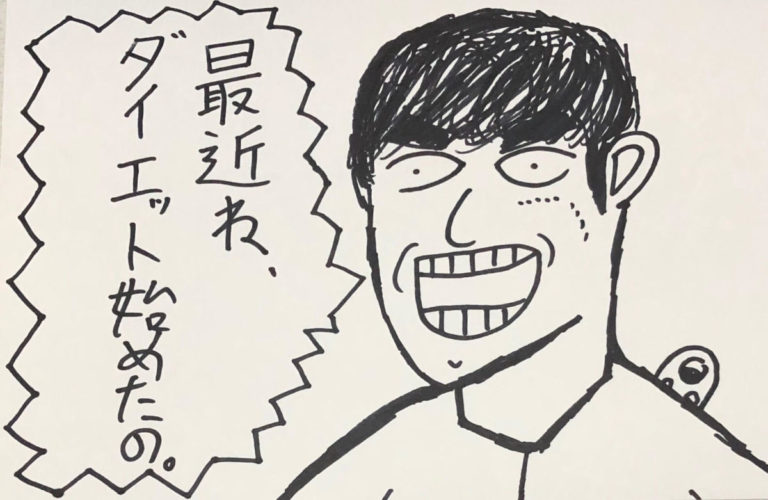 最近ね、
ダイエット始めたの。